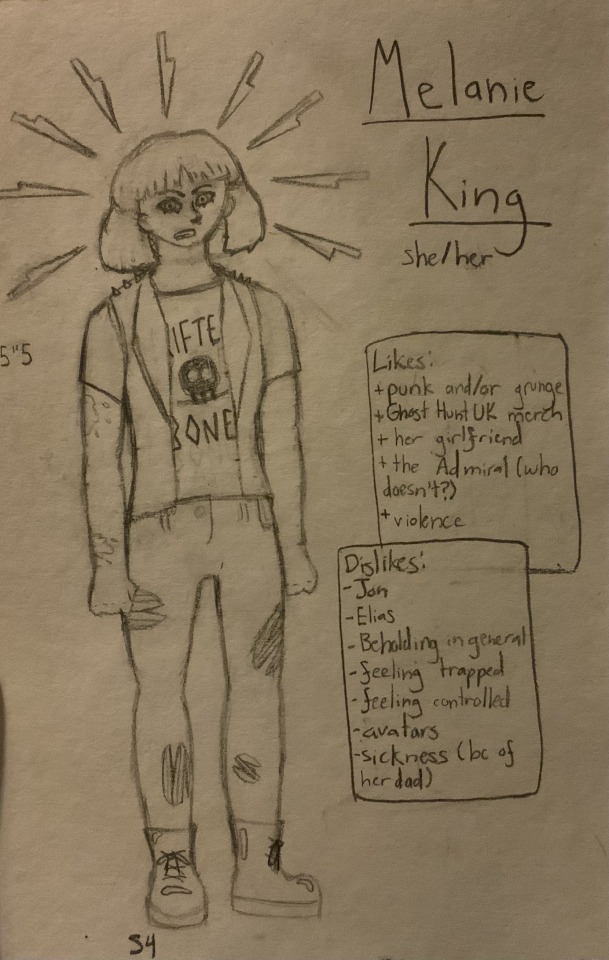 Melanie
King
she/her
5"5
IFTE
BONE
Likes:
+punk and/or grunge
+Ghost Hunt UK merch
+her girlfriend
+the Admiral (who
doesn't?)
+violence
Dislikes:
-Jon
-Elias
-Beholding in general
-feeling trapped
-feeling controlled
-avatars
-sickness (bc of
her dad)
S4